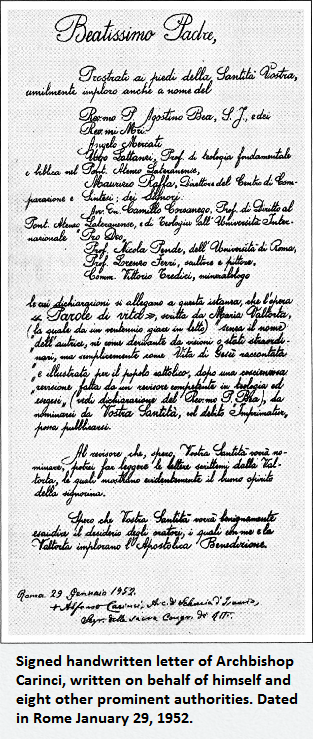 Beatissimo Padre,
Prostrati ai piedi della Santità Vostra,
umilmente imploro anche a nome del
Rev.mo P. Agostino Bea, S. J., e dei
Rev.mi Mri
Angelo Mercati
Ugo Lattanzi, Prof. di teologia fondamentale
e biblica nel Pont. Ateneo Lateranense,
Maurizio Raffa, Direttore del Centro di Com-
parazione e Sintesi; dei Signori:
Camillo Corsanego, Prof. di Diritto al
Pont. Ateneo Lateranense, e di Teologia all'Università Inter-
nazionale "Pro Deo,
Prof. Nicola Pende, dell'Università di Roma,
Prof. Lorenzo Ferri, scultore e pittore,
Comm. Vittorio Tredici, mineralogo
le cui dichiarazioni si allegano a questa istanza, che l'opera
« Parole di vita », scritta da Maria Valtorta,
(la quale da un ventennio giace in letto) "senza il nome
"dell'autrice, nè come derivante da visioni o stati straordi-
"nari, ma semplicemente come Vita di Gesù raccontata
"e illustrata per il popolo cattolico, dopo una coscienziosa
revisione fatta da un revisore competente in teologia ed
esegesi, (vedi dichiarazione del Rev.mo P. Bea), da
nominarsi da Vostra Santità, col debito Imprimatur,
possa pubblicarsi.
Al revisore che, spero, Vostra Santità vorrà no-
minare, potrei far leggere le lettere scrittemi dalla Val-
torta, le quali mostrano evidentemente il buono spirito
della signorina.
Spero che Vostra Santità vorrà benignamente
esaudire il desiderio degli oratori, i quali con me e la
Valtorta implorano l'Apostolica Benedizione.
Roma 29 Gennaio 1952.
+ Alfonso Carinci, Arc. di Seleucia d'Isauria,
Segr. della Sacra Congr. dei Riti.
Signed handwritten letter of Archbishop
Carinci, written on behalf of himself and
eight other prominent authorities. Dated
in Rome January 29, 1952.